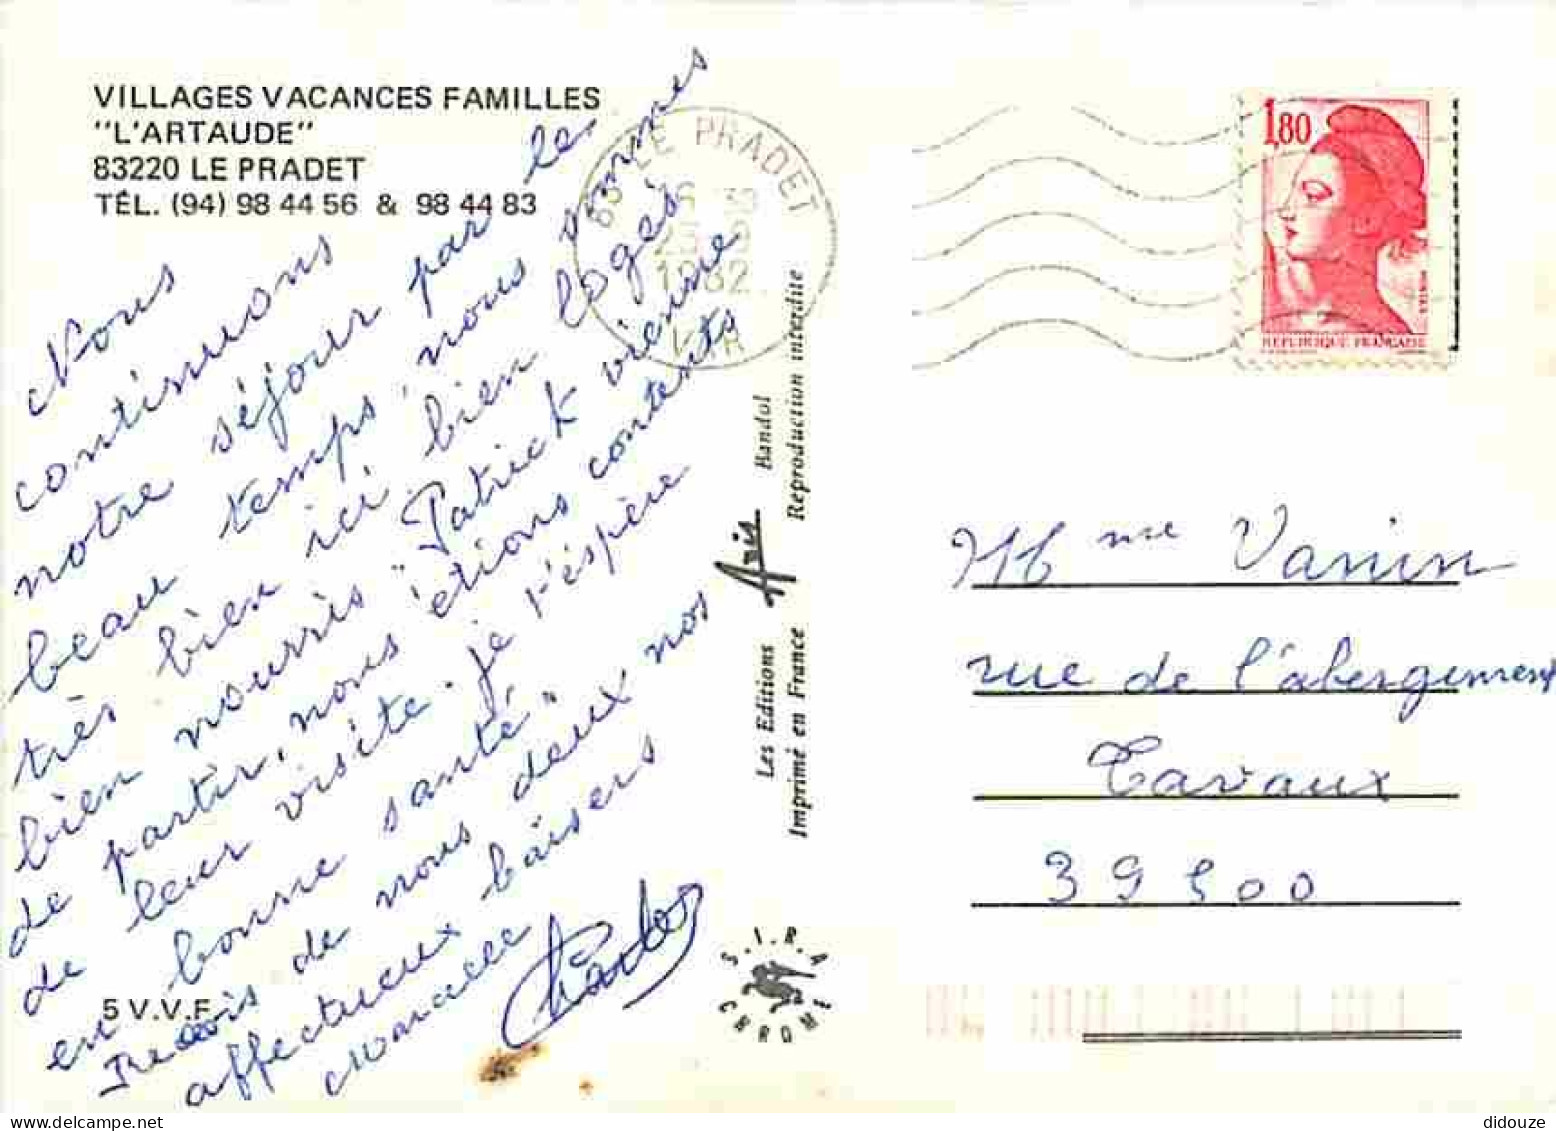 VILLAGES VACANCES FAMILLES
"L'ARTAUDE"
83220 LE PRADET
TÉL. (94) 98 44 56 & 98 44 83
Nous
continuons
notre séjour par le
beau temps, nous sommes
très bien ici bien logés
bien nourris "Patrick vienne
de partir, nous étions contents
de leur visite. je t'éspère
en bonne santé"
Recois de nous deux nos
affectueux baisers
Charles
5 V.V.F.
Les Editions Aris Bandol
Imprimé en France Reproduction interdite
S.I.R.A
CHROME
83 LE PRADET
1982
VAR
1,80
REPUBLIQUE FRANÇAISE
Mme Vanin
rue de l'abergement
Tavaux
39500
didouze